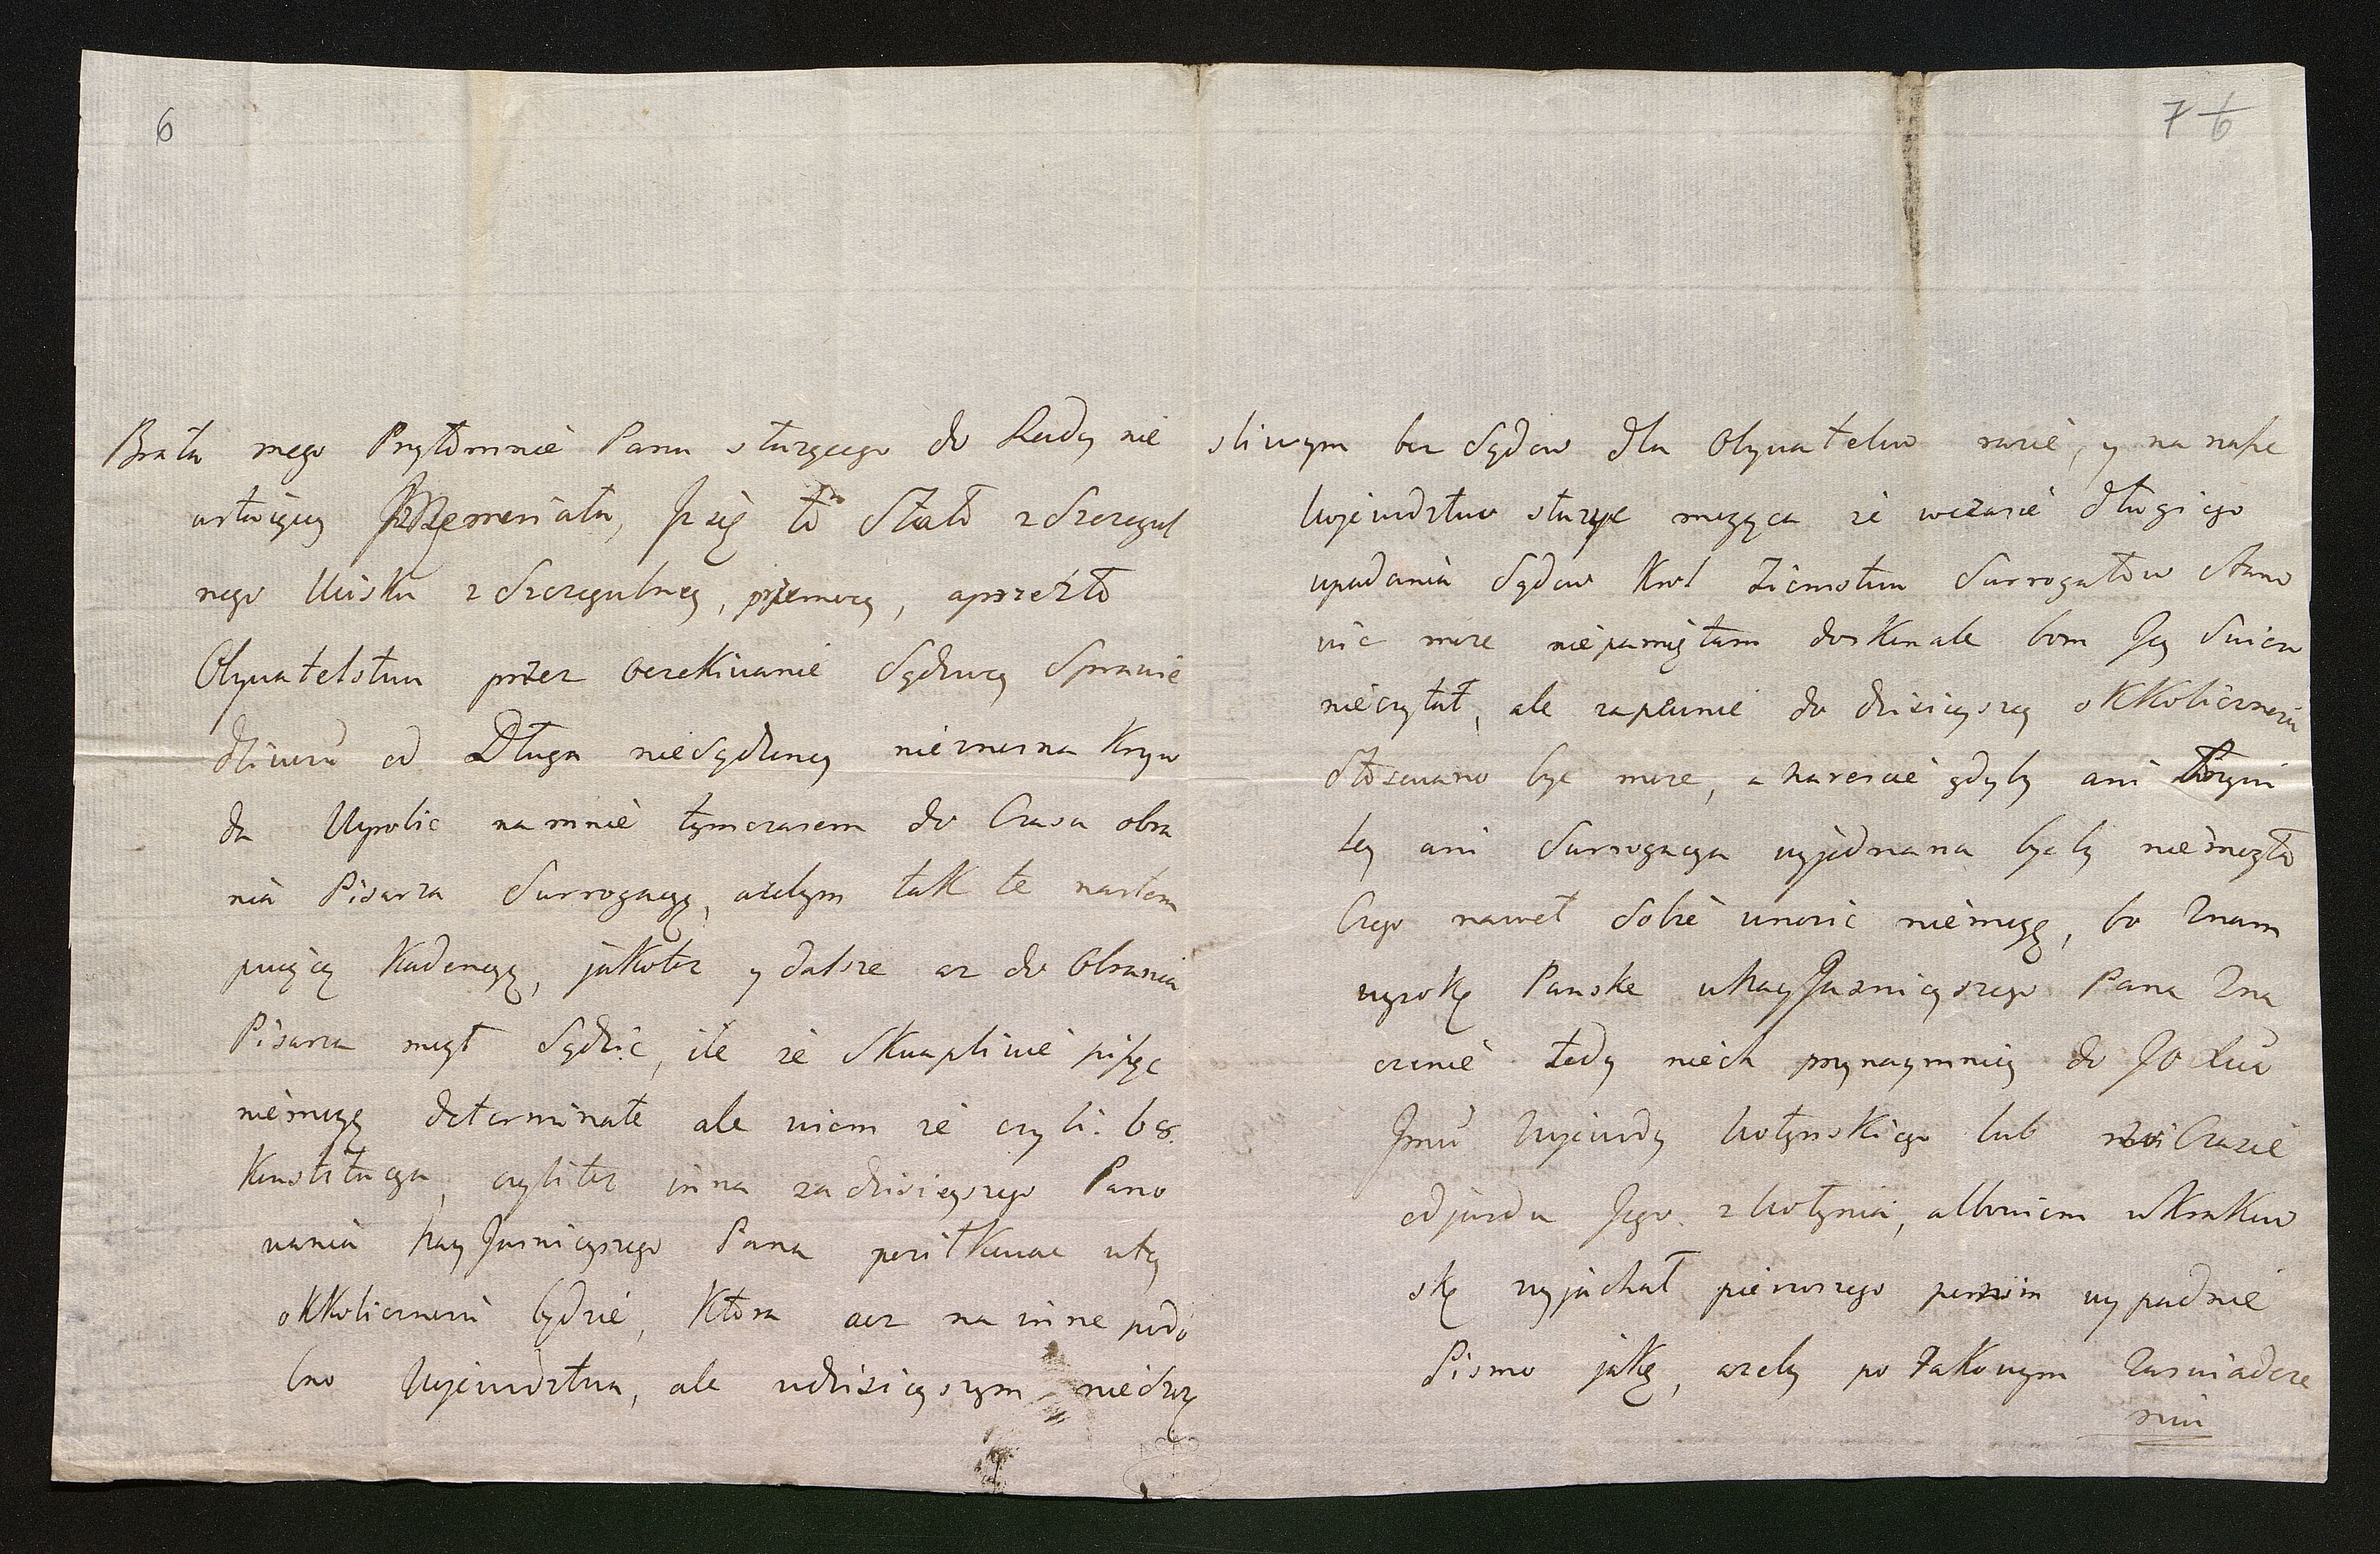 6
Brata mego Prytomnie Panu służącego do Rady nie
ustaiący Memoriału, Iż się to Stało z Szczegul
nego Ucisku z Szczegulney, przemocy, aprzeżto
Obywatelstwu przez oczekiwanie Sędziwey Sprawie
dliwość od Długa niesądzoney nieznosna Krzyw
da Uyrobic na mnie tymczasem do Czasu obra
nia Pisarza Surrogacyę, ażebym tak te nastem
puiącą Kadencyę, jakotez y dalsze az do Obrania
Pisarza mogł Sądzic, ile ze Skwapliwie pisząc
niemogę determinate ale wiem ze czyli. 68.
Konstitucya, czylitez inna zadzisieyszego Pano
wania Nay Jasnieyszego Pana positkować wtey
okkolicznosci będzie, Ktora acz na inne podo
bno Wojewodztwa, ale wdzisieyszym nieszczę
7 6
sliwym bez Sądow dla Obywatelow razie, y na nasze
Wojewodztwo służyc mogąca ze wczasie długiego
upadania Sądow Krol Ziemstwu Surrogatow Stano
wic moze niepamiętam doskonale bom Jey Swiezo
nieczytał, ale zapewnie do dzisieyszey okkolicznosci
Stosowano byc moze, a nareszcie gdyby ani
tey ani Surrogacya wyjednana bycby niemogła
Czego nawet Sobie wnosic niemogę, bo Znam
wysokę Panske uNayJasnieyszego Pana Zna
czenie tedy niech przynaymniey do JO Xcia
Jmci Wojewody Wołynskiego lub Czasie
odjazdu Jego z Wołynia, albowiem wKrakow
skę wyjachał pierwszego wypadnie
Pismo jakę, azeby po takowym Zaswiadcze
niu